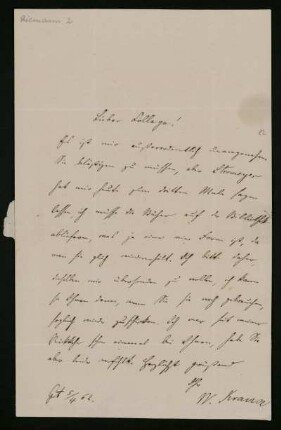 Lieber College!
Es ist mir außerordentlich unangenehm
Sie belästigen zu müssen, aber
hat mir heute zum dritten Male sagen
lassen, ich müsse die Bücher auf die Bibliothek
abliefern, was ja nur eine Form ist, da
man sie gleich wieder erhält. Ich bitte daher,
dieselben mir übersenden zu wollen, ich kann
sie Ihnen dann, wenn Sie sie noch gebrauchen,
sogleich wieder zuschicken. Ich war seit meiner
Rückkehr schon einmal bei Ihnen, habe Sie
aber leider verfehlt. Herzlichst grüßend
Ihr
W. Krause